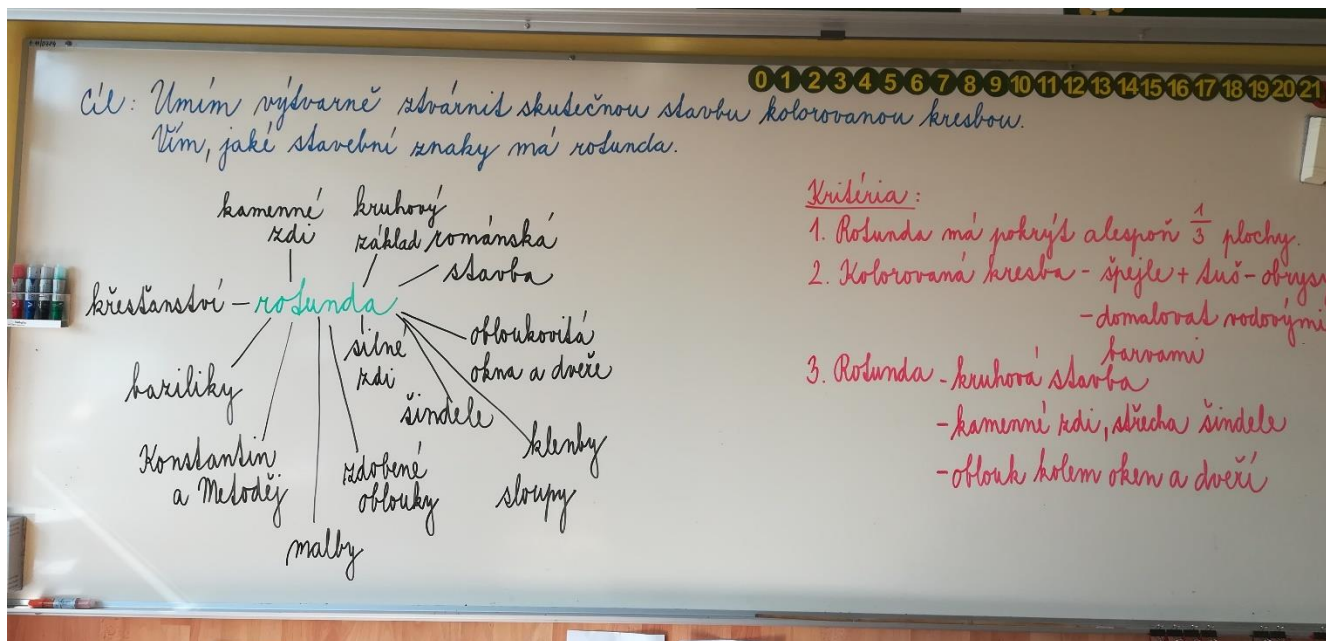 0 1 2 3 4 5 6 7 8 9 10 11 12 13 14 15 16 17 18 19 20 21
Cíl: Umím výtvarně ztvárnit skutečnou stavbu kolorovanou kresbou.
Vím, jaké stavební znaky má rotunda.
kamenné
zdi
kruhový
základ
románská
stavba
křesťanství - rotunda
silné
zdi
obloukovitá
okna a dveře
baziliky
šindele
klenby
Konstantin
a Metoděj
zdobené
oblouky
sloupy
malby
Kritéria:
1. Rotunda má pokrýt alespoň 1/3 plochy.
2. Kolorovaná kresba - špejle + tuš - obrys
- domalovat vodovými
barvami
3. Rotunda - kruhová stavba
- kamenné zdi, střecha šindele
- oblouk kolem oken a dveří